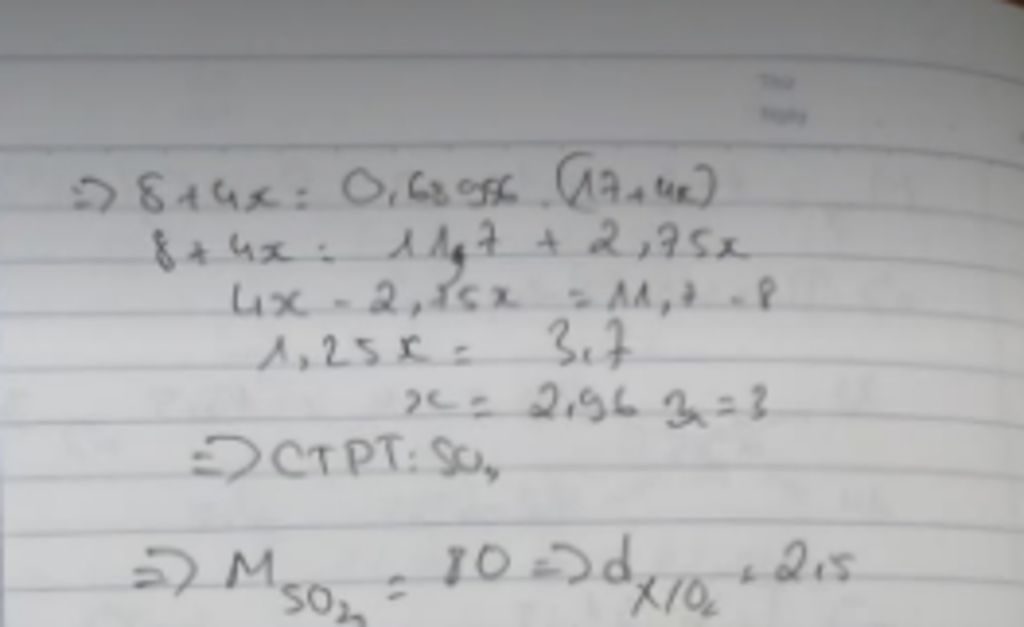 Thứ
Ngày
=> 8+4x = 0,68956 . (17+4x)
8+4x = 11,7 + 2,75x
4x - 2,75x = 11,7 - 8
1,25x = 3,7
x = 2,96 = 3
=> CTPT: SO₃
=> M SO₃ = 80 => d X/O₂ = 2,5